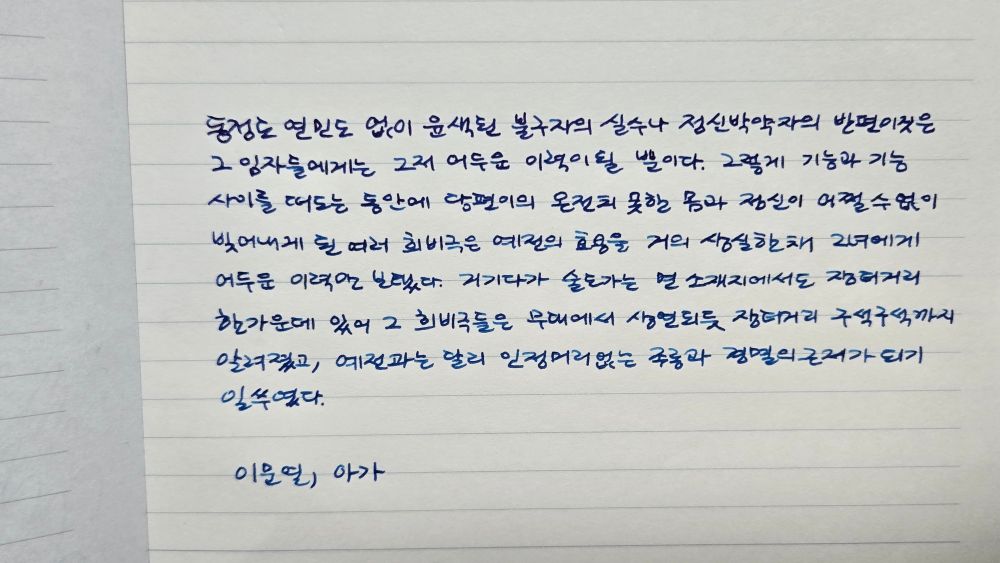 동정도 연민도 없이 윤색된 불구자의 실수나 정신박약자의 반편이짓은
그 임자들에게는 그저 어두운 이력이 될 뿐이다. 그렇게 기능과 기능
사이를 떠도는 동안에 당편이의 온전치 못한 몸과 정신이 어쩔 수 없이
빚어내게 된 여러 희비극은 예전의 효용을 거의 상실한 채 그녀에게
어두운 이력만 보탰다. 거기다가 술도가는 면 소재지에서도 장터거리
한가운데 있어 그 희비극들은 무대에서 상연되듯 장터거리 구석구석까지
알려졌고, 예전과는 달리 인정머리없는 조롱과 경멸의 근거가 되기
일쑤였다.
이문열, 아가